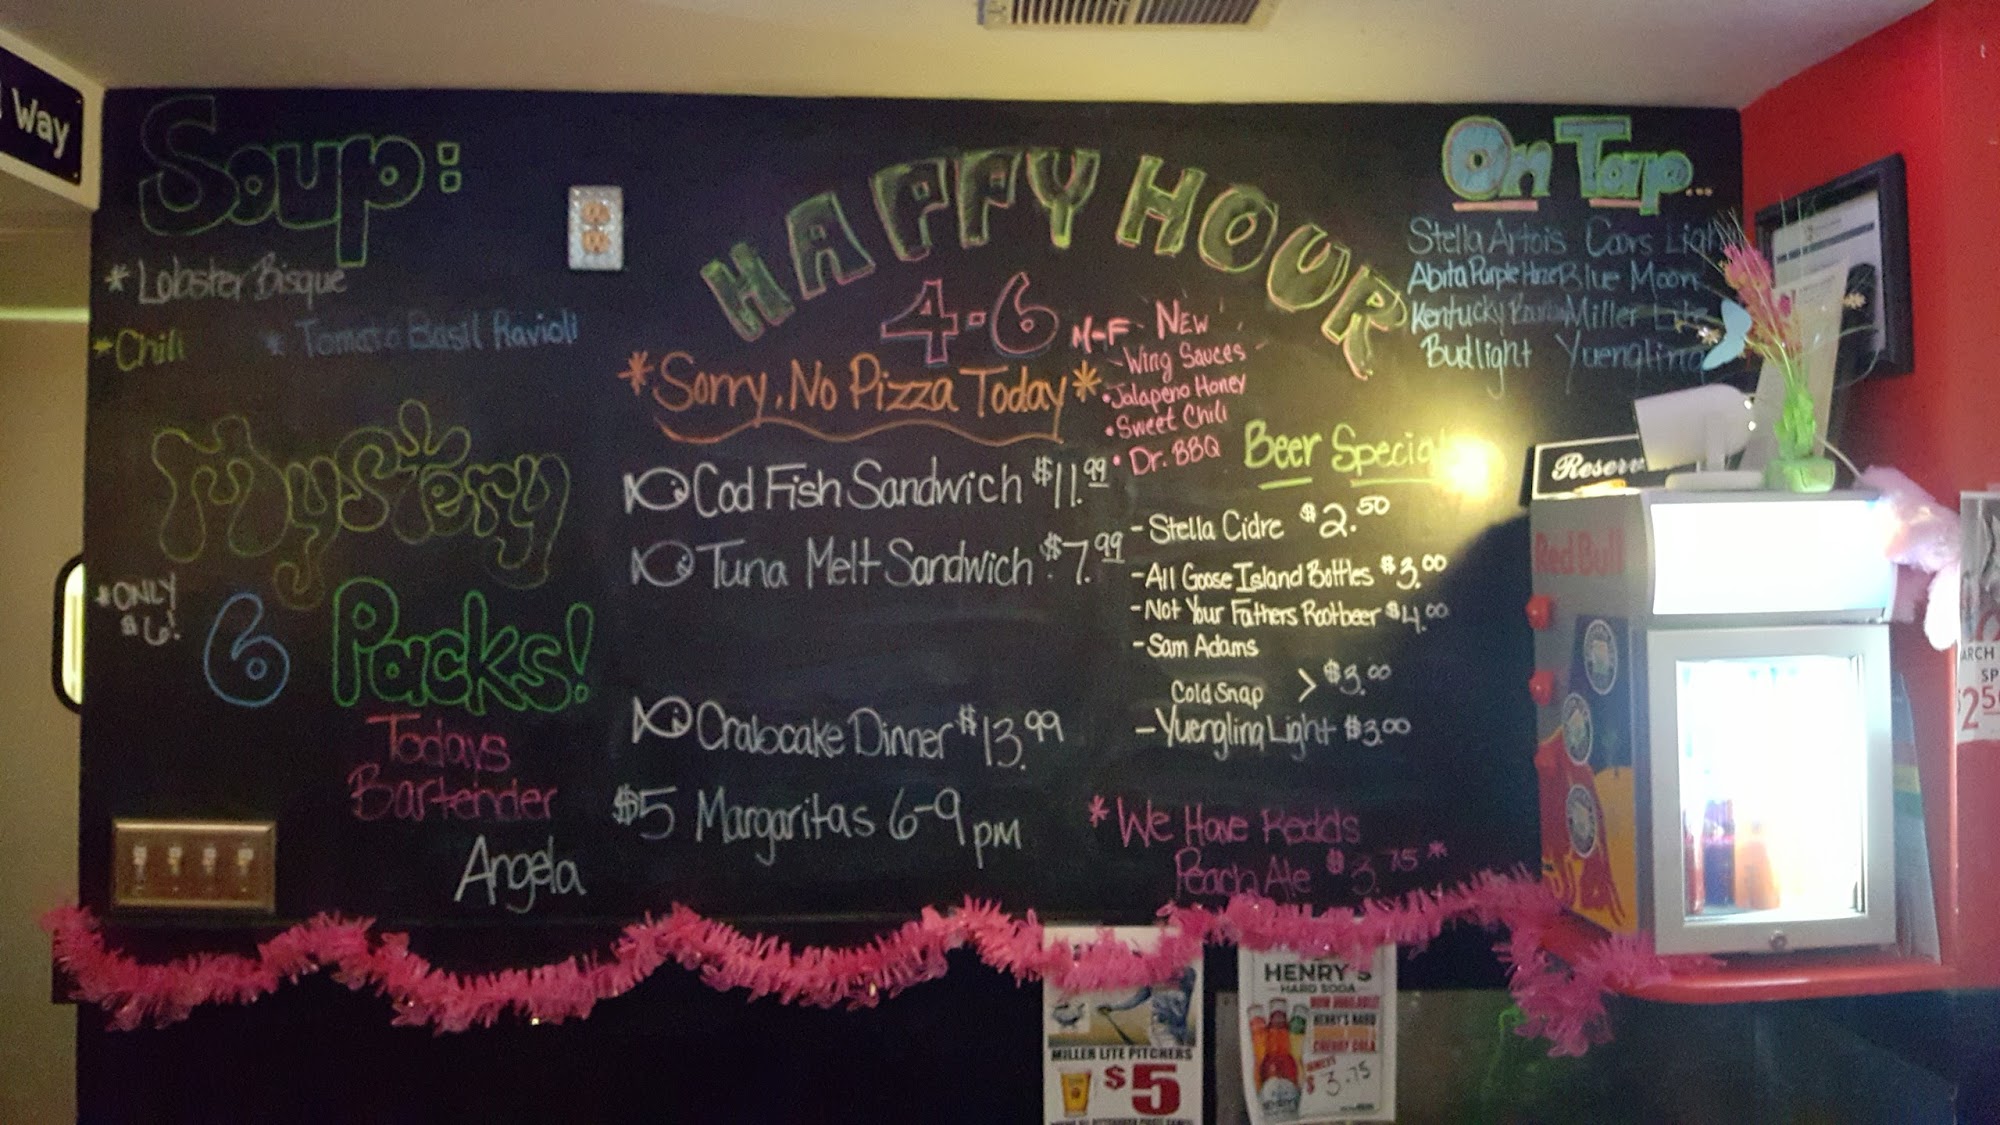 Way
Soup:
* Lobster Bisque
* Chili
* Tomato Basil Ravioli
Mystery
* ONLY
$6!
6 Packs!
Todays
Bartender
Angela
HAPPY HOUR
4-6 M-F
*Sorry, No Pizza Today*
Cod Fish Sandwich $11.99
Tuna Melt Sandwich $7.99
Crabcake Dinner $13.99
$5 Margaritas 6-9 pm
NEW
Wing Sauces
• Jalapeno Honey
• Sweet Chili
• Dr. BBQ
Beer
- Stella Cidre $2.50
- All Goose Island Bottles $3.00
- Not Your Fathers Rootbeer $4.00
- Sam Adams
Cold Snap > $3.00
- Yuengling Light $3.00
* We Have Redds
Peach Ale $3.75 *
On Tap...
Stella Artois Coors Light
Abita Purple Haze Blue Moon
Kentucky Miller Lite
Budlight Yuengling
Red Bull
MILLER LITE PITCHERS
$5
HENRY'S
HARD SODA
NOW AVAILABLE
HENRY'S HARD
CHERRY COLA
$3.75